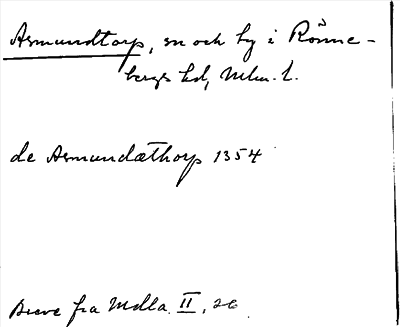 Asmundtorp, sn och by i Rönne-
bergs hd, Mlm. l.
de Asmundæthorp 1354
Breve fra Mdla. II, 26